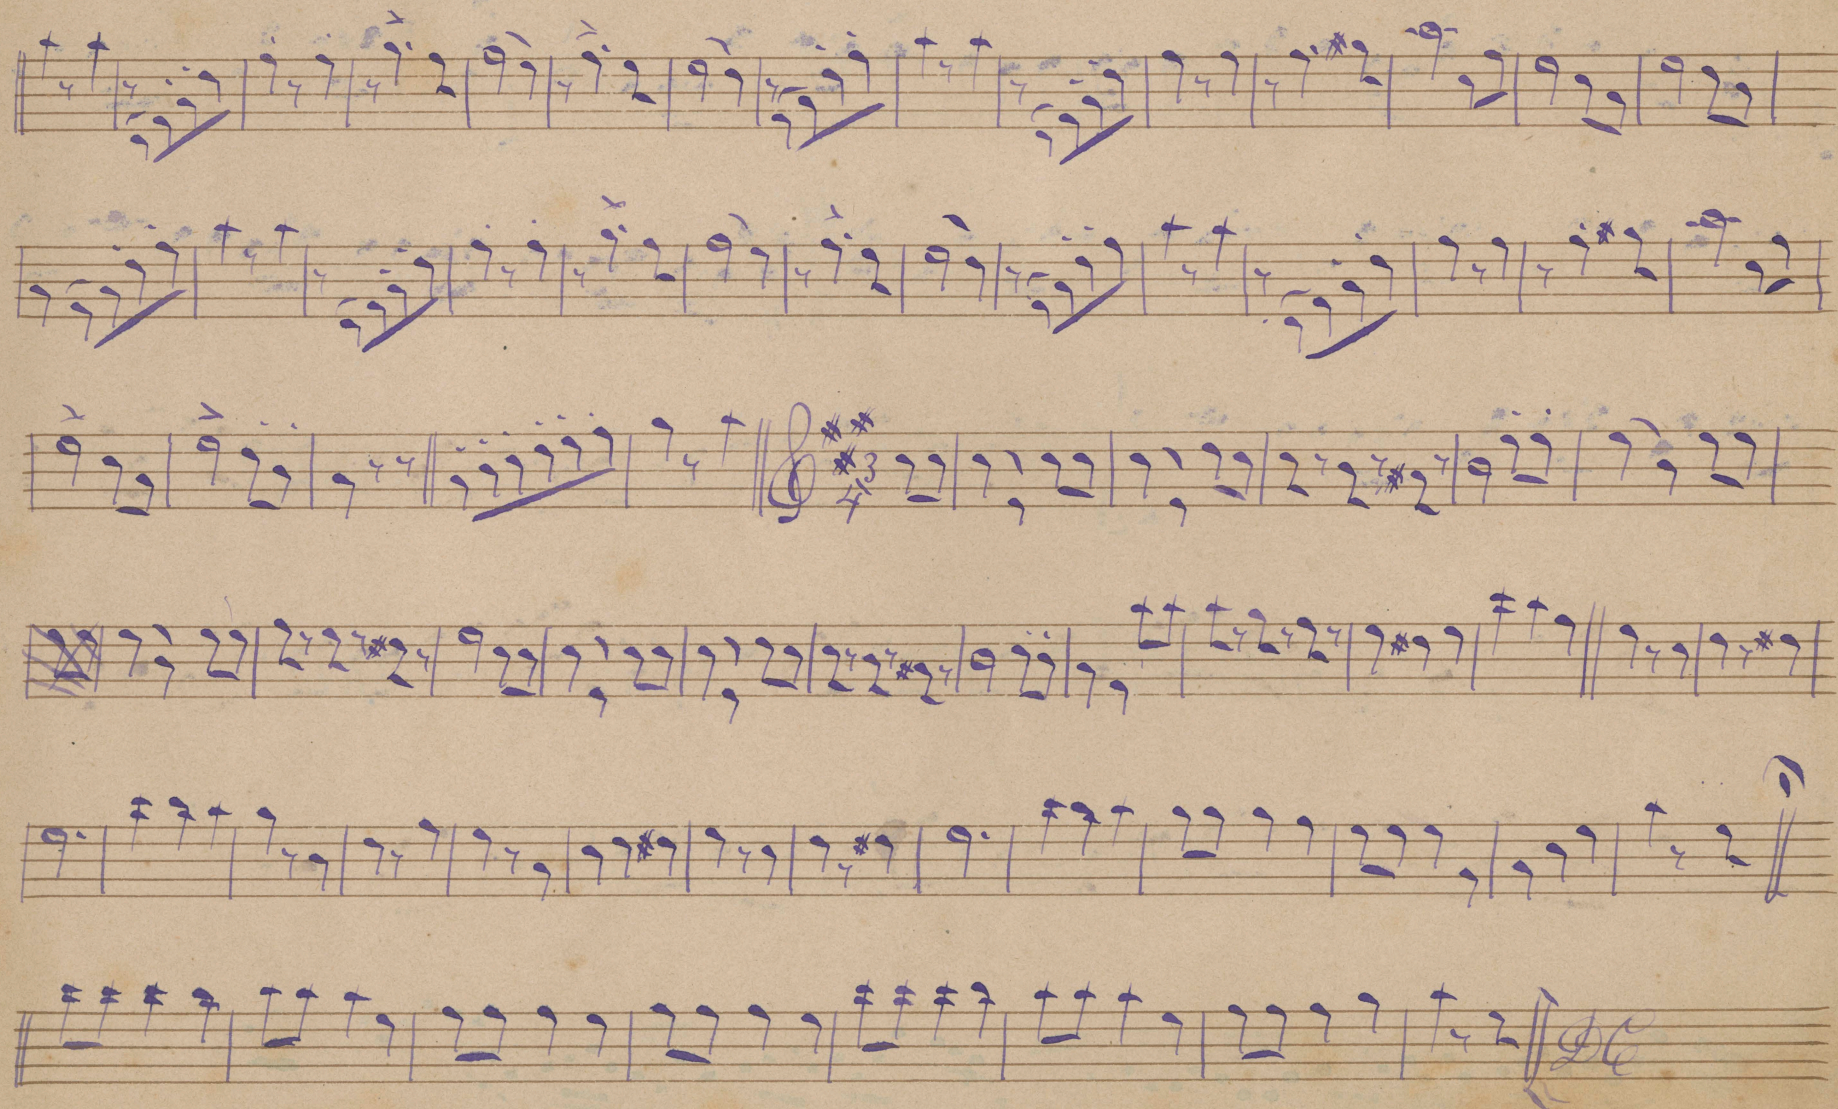 3
4
DC